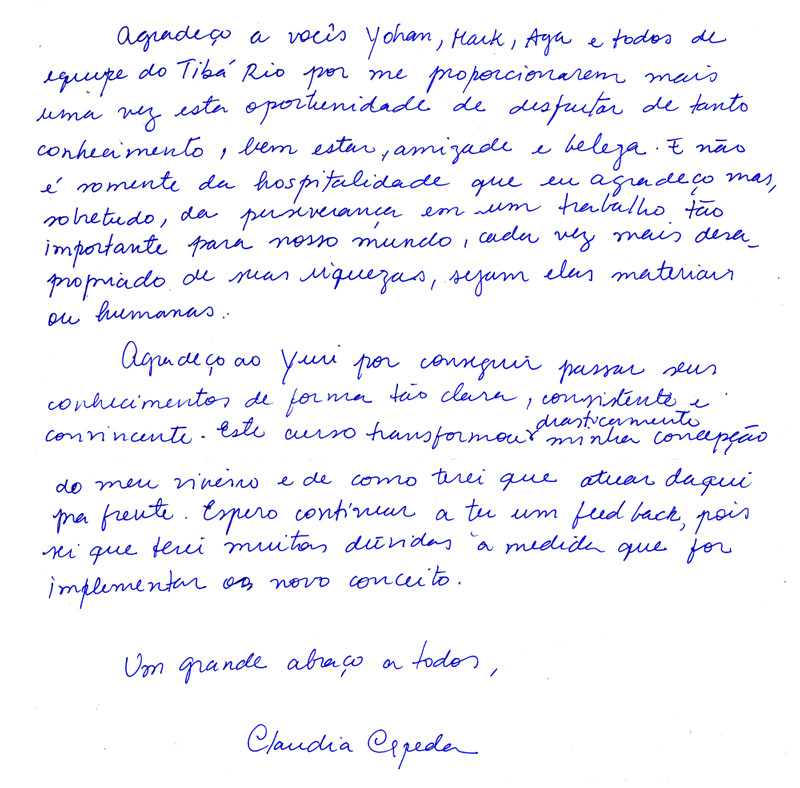 Agradeço a vocês Yohan, Mark, Aga e todos de
equipe do Tibá Rio por me proporcionarem mais
uma vez esta oportunidade de desfrutar de tanto
conhecimento, bem estar, amizade e beleza. E não
é somente da hospitalidade que eu agradeço mas,
sobretudo, da perseverança em um trabalho tão
importante para nosso mundo, cada vez mais desa-
propriado de suas riquezas, sejam elas materiais
ou humanas.
Agradeço ao Yuri por conseguir passar seus
conhecimentos de forma tão clara, consistente e
convincente. Este curso transformou drasticamente minha concepção
do meu viveiro e de como terei que atuar daqui
pra frente. Espero continuar a ter um feedback, pois
sei que terei muitas dúvidas à medida que for
implementar o novo conceito.
Um grande abraço a todos,
Claudia Cepeda